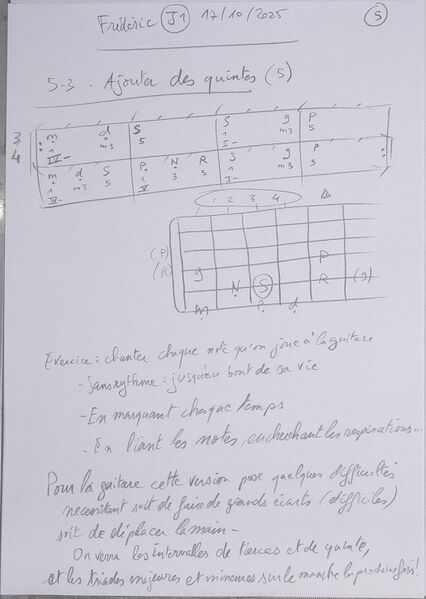 Frédéric J1 17/10/2025 5
5-3. Ajouter des quintes (5)
3 m d S S g P
1 m3 5 1 m3 5
IV- I-
4 m d S P N R S g P
1 m3 5 1 3 5 1 m3 5
IV- V I-
1 2 3 4 Δ
(P) P
(R) g R (g)
N S
m P d
Exercice : chanter chaque note qu'on joue à la guitare
- Sans rythme : jusqu'au bout de sa vie
- En marquant chaque temps
- En liant les notes, en cherchant les respirations...
Pour la guitare cette version pose quelques difficultés
necessitant soit de faire de grands écarts (difficiles)
soit de déplacer la main -
On verra les intervalles de tierces et de quinte,
et les triades majeures et mineures sur le manche la prochaine fois !